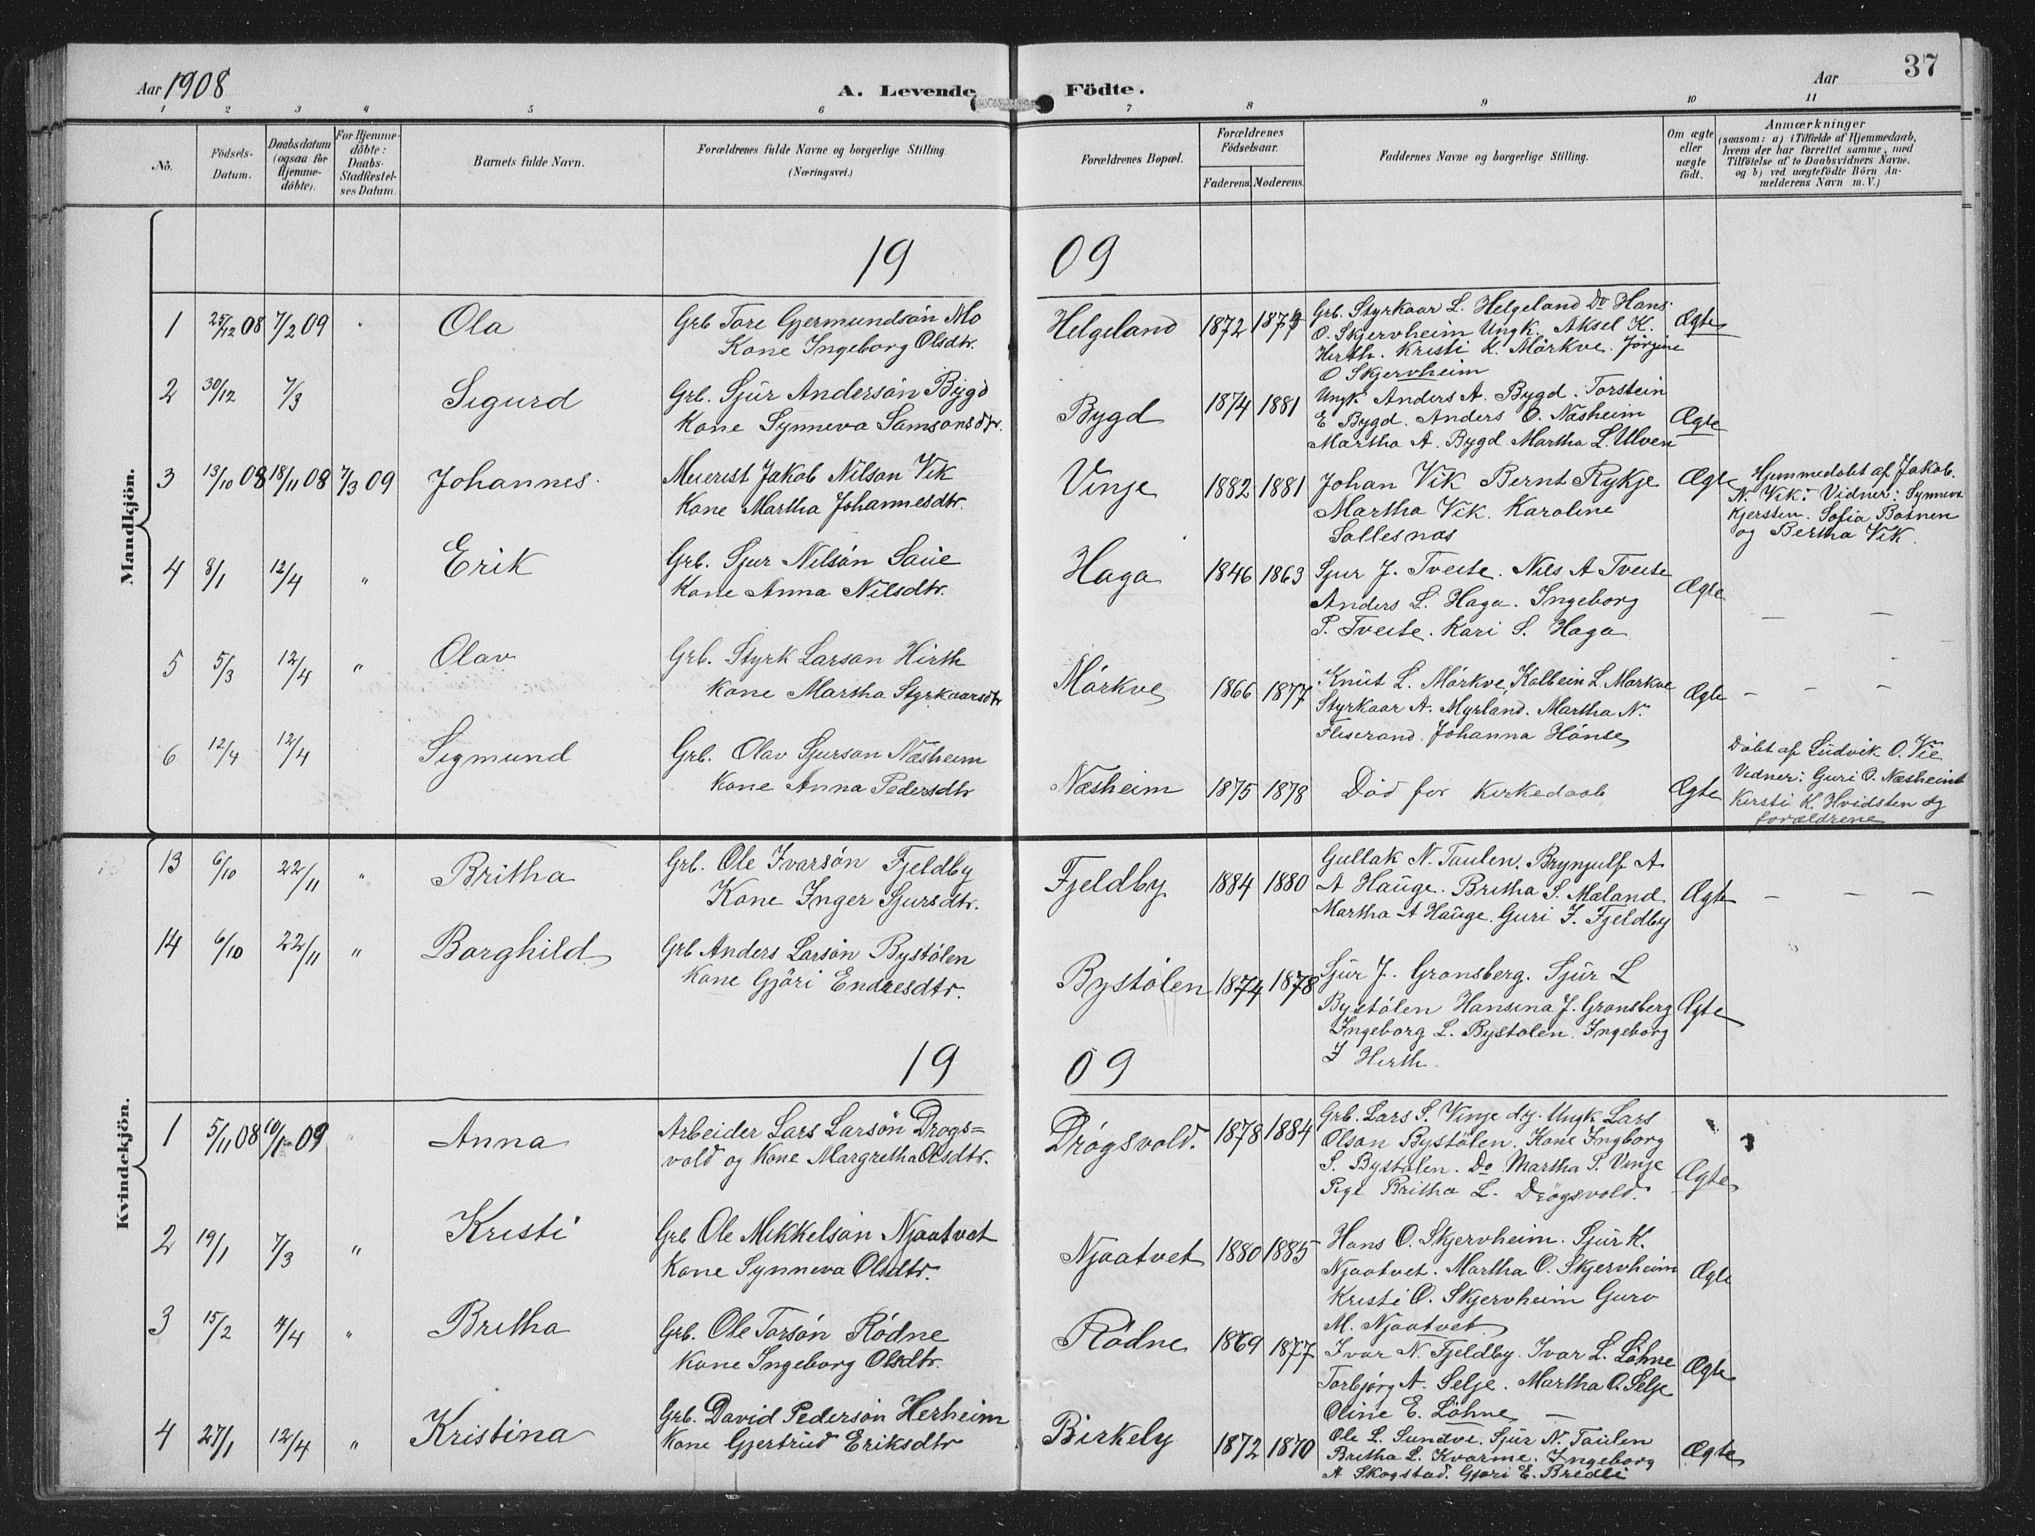 37
Aar 1908
A. Levende Födte.
Aar
1 2 3 4 5 6 7 8 9 10 11
No.
Födsels-
Datum.
Daabsdatum
(ogsaa for
Hjemme-
döbte).
For Hjemme-
döbte:
Daabs-
Stadfæstel-
ses Datum.
Barnets fulde Navn.
Forældrenes fulde Navne og borgerlige Stilling.
(Næringsvei.)
Forældrenes Bopæl.
Forældrenes
Födselsaar.
Faderens. Moderens.
Faddernes Navne og borgerlige Stilling.
Om ægte
eller
uægte
födt.
Anmærkninger
(saasom: a) i Tilfælde af Hjemmedaab,
hvem der har forrettet samme, med
Tilföielse af to Daabsvidners Navne.
og b) ved uægtefödte Börn An-
melderens Navn m. V.)
Mandkjön.
19 09
1 25/12 08 7/2 09 Ola
Grb Tore Gjermundsön Mo
Kone Ingeborg Olsdtr.
Helgeland 1872 1874
Grb. Styrkaar L. Helgeland Do Hans
O. Skjervheim Ungk. Aksel K.
Hirth. Kristi K. Mörkve. Jörgine
O Skjervheim
Ægte
2 30/12 7/3 Sigurd
Grb. Sjur Andersön Bygd
Kone Synneva Samsonsdtr.
Bygd 1874 1881
Ungk. Anders A. Bygd. Torstein
E Bygd. Anders O. Næsheim
Martha A. Bygd Martha L. Ulven
Ægte
3 13/10 08 18/11 08 7/3 09 Johannes
Meierist Jakob Nilsön Vik
Kone Martha Johannesdtr.
Vinje 1882 1881
Johan Vik Bernt Rykje
Martha Vik. Karoline
Sallesnas
Ægte
Hjemmedöbt af Jakob.
N. Vik. Vidner: Synneva
Kjersten. Sofia Botnen
og Bertha Vik.
4 8/1 12/4 " Erik
Grb. Sjur Nilsön Saue
Kone Anna Nilsdtr.
Haga 1846 1863
Sjur J. Tveite. Nils A Tveite
Anders L. Haga. Ingeborg
P. Tveite. Kari S. Haga
Ægte
5 5/3 12/4 " Olav
Grb. Styrk Larson Hirth
Kone Martha Styrkaarsdtr
Mörkve 1866 1877
Knut L. Mörkve, Kolbein L. Mörkve
Styrkaar A. Myrland. Martha N.
Johanna Hönse
Ægte
6 12/4 12/4 Sigmund
Grb. Olav Sjurson Næsheim
Kone Anna Pedersdtr
Næsheim 1875 1878
Död før kirkedaab
Ægte
Döbt af Ludvik O. Vie
Vidner: Guri O. Næsheim
Kersti K. Hvidsten og
forældrene
13 6/10 22/11 " Britha
Grb. Ole Ivarsön Fjeldby
Kone Inger Sjursdtr.
Fjeldby 1884 1880
Gullak N. Taulen. Brynjulf A
A Hauge. Britha S. Mæland
Martha A Hauge. Guri I. Fjeldby
Ægte
14 6/10 22/11 " Borghild
Grb Anders Larsön Bystölen
Kone Gjöri Endresdtr.
Bystölen 1874 1878
Sjur J. Gronsberg. Sjur L
Bystölen Hansina J. Gronsberg
Ingeborg L. Bystolen. Ingeborg
I Hirth.
Ægte
19 09
Kvindekjön.
1 5/11 08 10/1 09 " Anna
Arbeider Lars Larsön Drögs=
vold og Kone Margretha Olsdtr.
Drögsvold. 1878 1884
Grb. Lars S. Vinje og. Ungk. Lars
Olson Bystölen. Kone Ingborg
S. Bystölen. Do Martha P. Vinje
Pige Britha L. Drögsvold.
Ægte
2 19/1 7/3 " Kristi
Grb Ole Mikkelsön Njaatvet
Kone Synneva Olsdtr.
Njaatvet 1880 1885
Hans O. Skjervheim. Sjur K.
Njaatvet. Martha O. Skjervheim
Kristi O. Skjervheim Guro
M. Njaatvet
Ægte
3 15/2 4/4 " Britha
Grb. Ole Torsön Rödne
Kone Ingeborg Olsdtr.
Rödne 1869 1877
Ivar N. Fjeldby. Ivar L. Löhne
Torbjörg A. Selje. Martha O. Selje
Oline E. Löhne
Ægte
4 27/1 12/4 " Kristina
Grb. David Pedersön Herheim
Kone Gjertrud Eriksdtr
Birkely 1872 1870
Ole L. Sundve. Sjur N. Taulen
Britha L. Kvarme. Ingeborg
A. Skogstad. Gjøri E. Bredli
Ægte